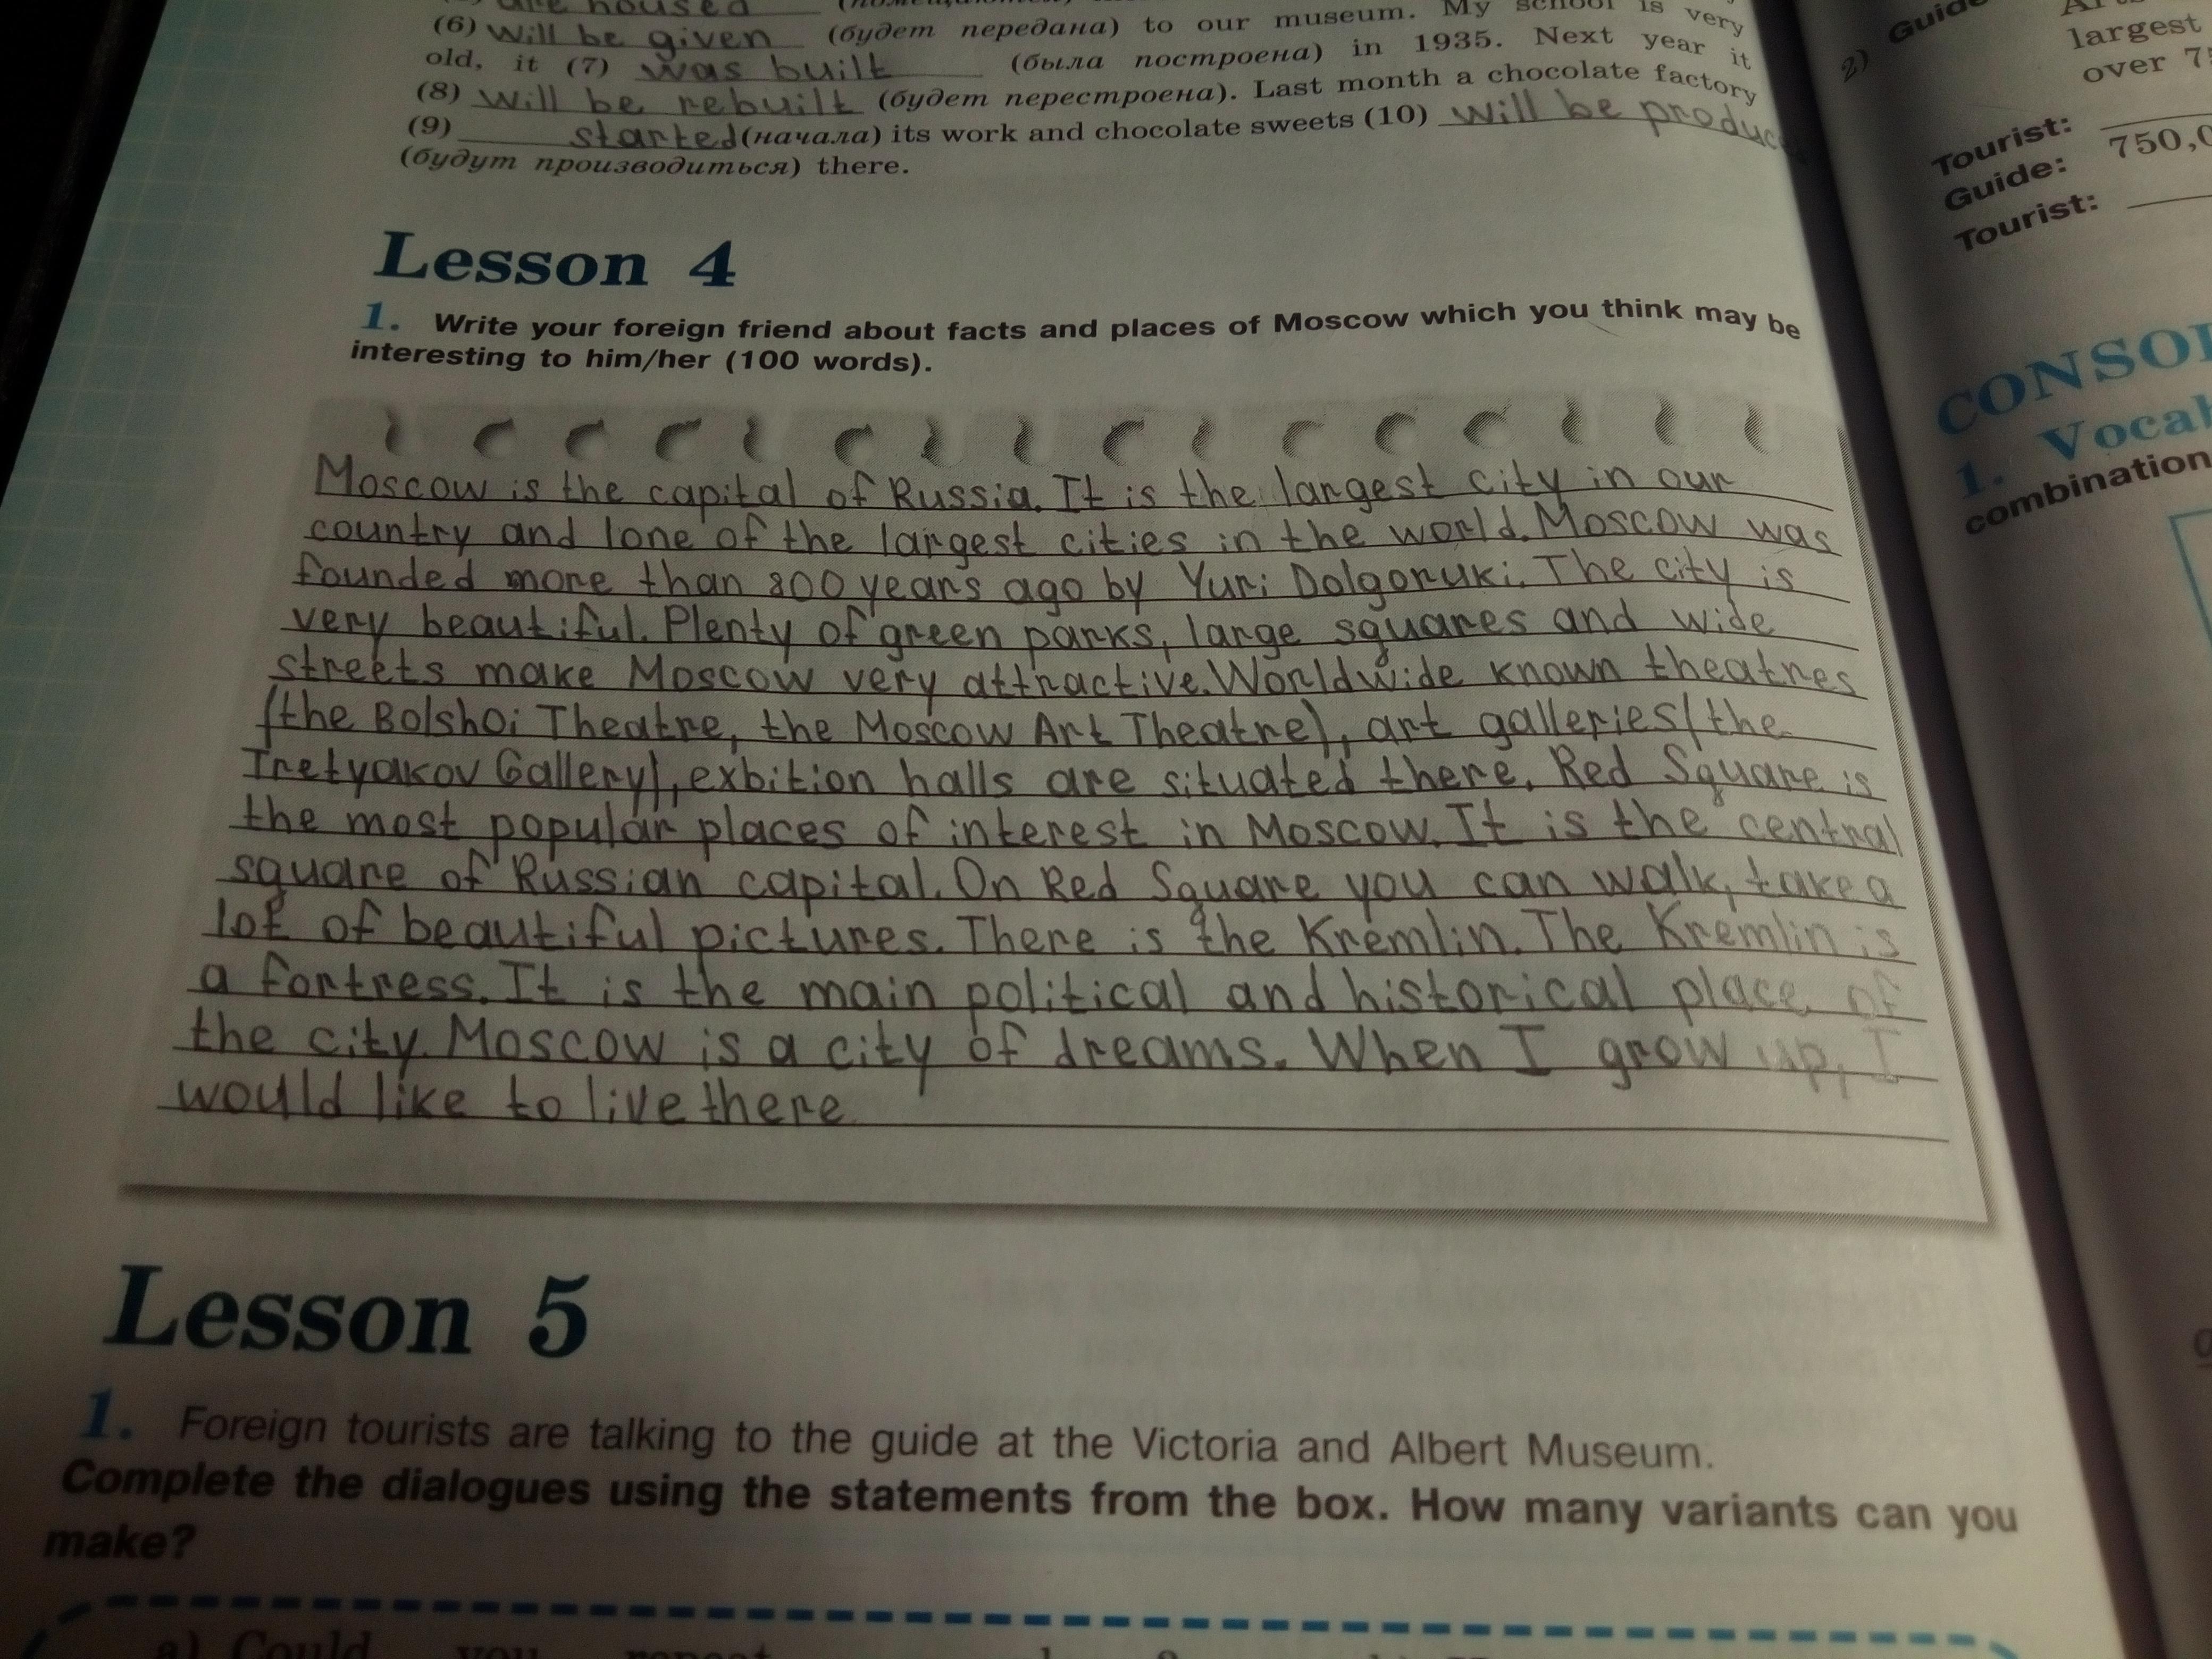 are housed
(6) will be given (будет передана) to our museum. My school is very
old, it (7) was built (была построена) in 1935. Next year it
(8) will be rebuilt (будет перестроена). Last month a chocolate factory
(9) started (начала) its work and chocolate sweets (10) will be
(будут производиться) there.
Lesson 4
1. Write your foreign friend about facts and places of Moscow which you think may be
interesting to him/her (100 words).
Moscow is the capital of Russia. It is the largest city in our
country and lone of the largest cities in the world. Moscow was
founded more than 800 years ago by Yuri Dolgoruki. The city is
very beautiful. Plenty of green parks, large squares and wide
streets make Moscow very attractive. Worldwide known theatres
(the Bolshoi Theatre, the Moscow Art Theatre), art galleries (the
Tretyakov Gallery), exbition halls are situated there. Red Square is
the most popular places of interest in Moscow. It is the central
square of Russian capital. On Red Square you can walk, take a
lot of beautiful pictures. There is the Kremlin. The Kremlin is
a fortress. It is the main political and historical place of
the city. Moscow is a city of dreams. When I grow up, I
would like to live there
Lesson 5
1. Foreign tourists are talking to the guide at the Victoria and Albert Museum.
Complete the dialogues using the statements from the box. How many variants can you
make?
a) Could you repeat
2) Guide
largest
over
Tourist:
Guide:
Tourist:
1.
combination